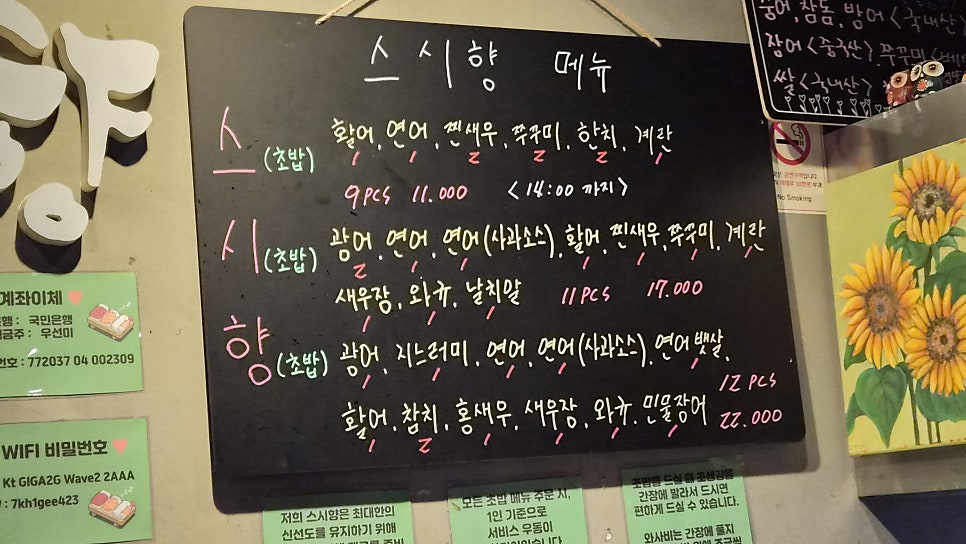 향
스시향 메뉴
스(초밥) 활어, 연어, 찐새우, 쭈꾸미, 한치, 계란
9pcs 11.000 <14:00 까지>
시(초밥) 광어, 연어, 연어(사과소스), 활어, 찐새우, 쭈꾸미, 계란
새우장, 와규, 날치말 11pcs 17.000
향(초밥) 광어, 지느러미, 연어, 연어(사과소스), 연어뱃살,
활어, 참치, 홍새우, 새우장, 와규, 민물장어 12pcs
22.000
참돔, 방어 <국내산>
장어 <중국산> 쭈꾸미
쌀 <국내산>
No Smoking
계좌이체
국민은행
우선미
772037 04 002309
WIFI 비밀번호
Kt GIGA2G Wave2 2AAA
: 7kh1gee423
저희 스시향은 최대한의
신선도를 유지하기 위해
모든 초밥 메뉴 주문 시,
1인 기준으로
서비스 우동이
초밥을 드실 때 초생강을
간장에 발라서 드시면
편하게 드실 수 있습니다.
와사비는 간장에 풀지